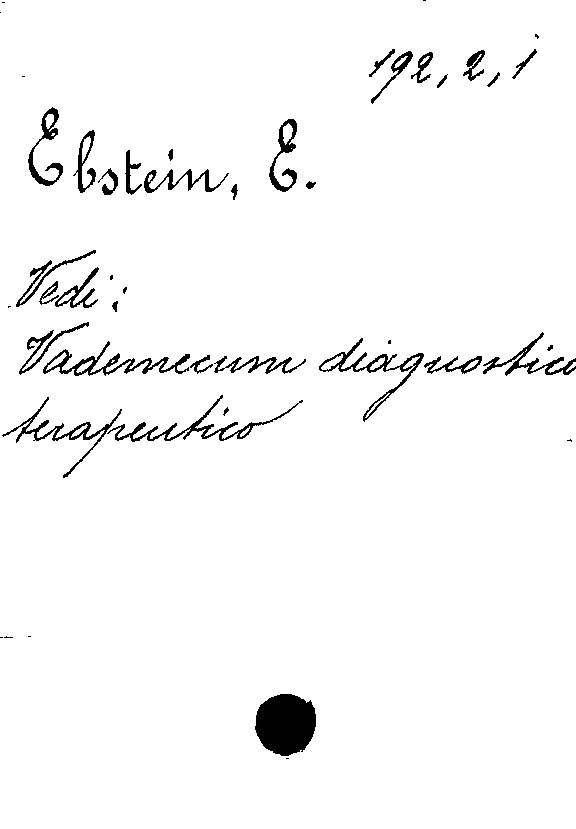 192, 2, 1
Ebstein, E.
Vedi:
Vademecum diagnostico
terapeutico